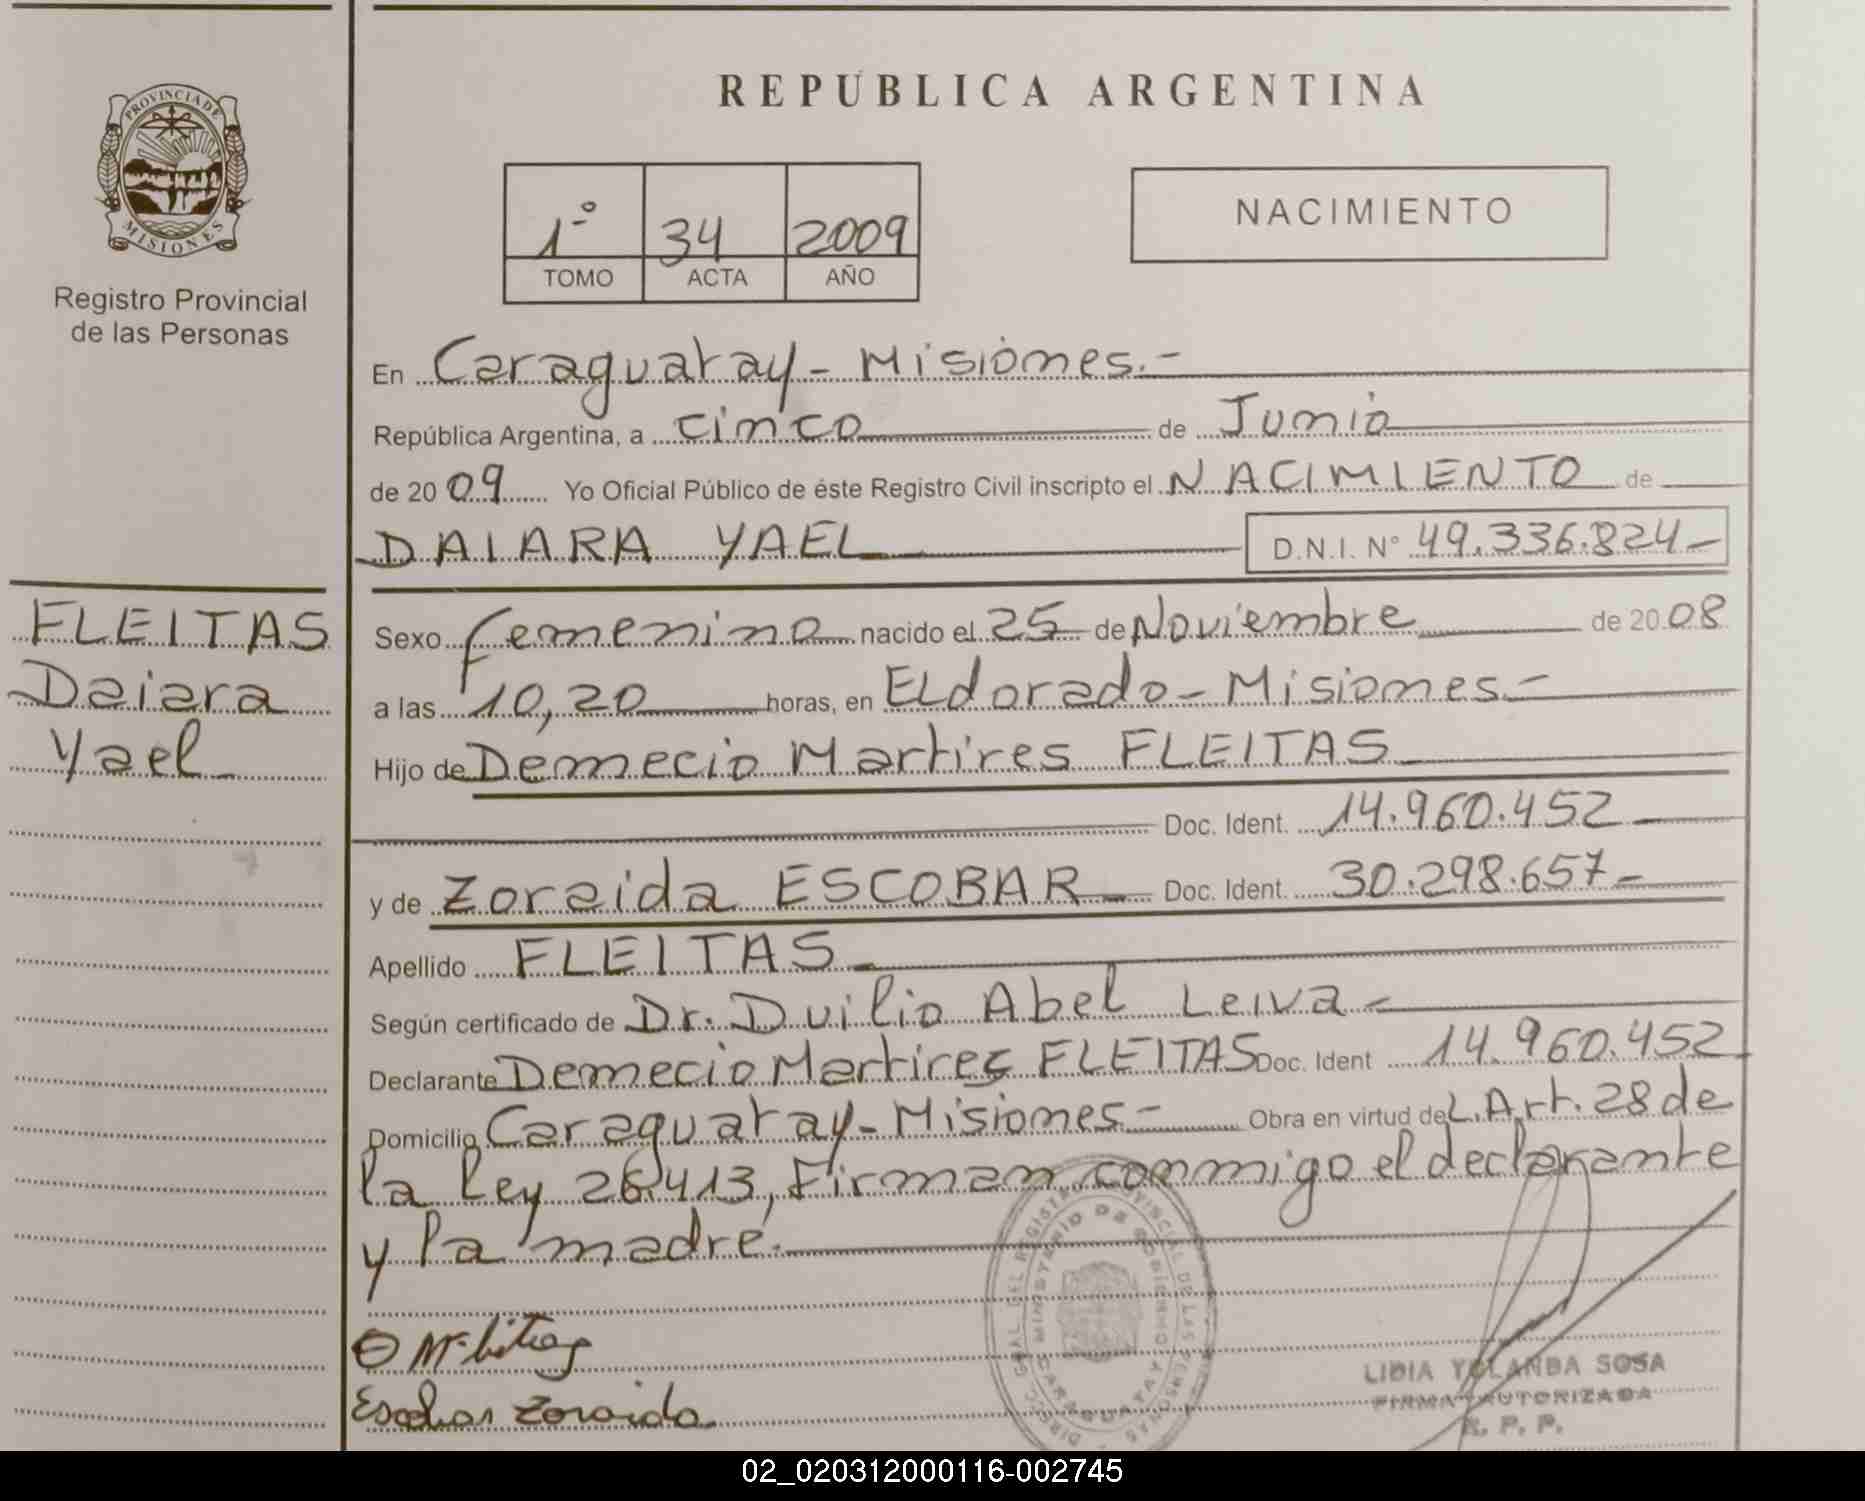 REPÚBLICA ARGENTINA
PROVINCIA DE
MISIONES
Registro Provincial
de las Personas
1º 34 2009
TOMO ACTA AÑO
NACIMIENTO
En Caraguatay - Misiones.-
República Argentina, a cinco de Junio
de 20 09 Yo Oficial Público de éste Registro Civil inscripto el NACIMIENTO de
DAIARA YAEL D.N.I. N° 49.336.824-
FLEITAS
Daiara
Yael
Sexo femenino nacido el 25 de Noviembre de 20 08
a las 10,20 horas, en ELdorado - Misiones.-
Hijo de Demecio Martires FLEITAS
Doc. Ident. 14.960.452
y de Zoraida ESCOBAR Doc. Ident. 30.298.657-
Apellido FLEITAS
Según certificado de Dr. Duilio Abel Leiva
Declarante Demecio Martires FLEITAS Doc. Ident 14.960.452
Domicilio Caraguatay - Misiones- Obra en virtud de L. Art. 28 de
la Ley 26.413, Firman conmigo el declarante
y la madre.
Escobar Zoraida
DIRECC. GRAL DEL REGISTRO PROVINCIAL DE LAS PERSONAS
MINISTERIO DE GOBIERNO
CARAGUATAY
LIDIA YOLANDA SOSA
FIRMA AUTORIZADA
R. P. P.
02_020312000116-002745